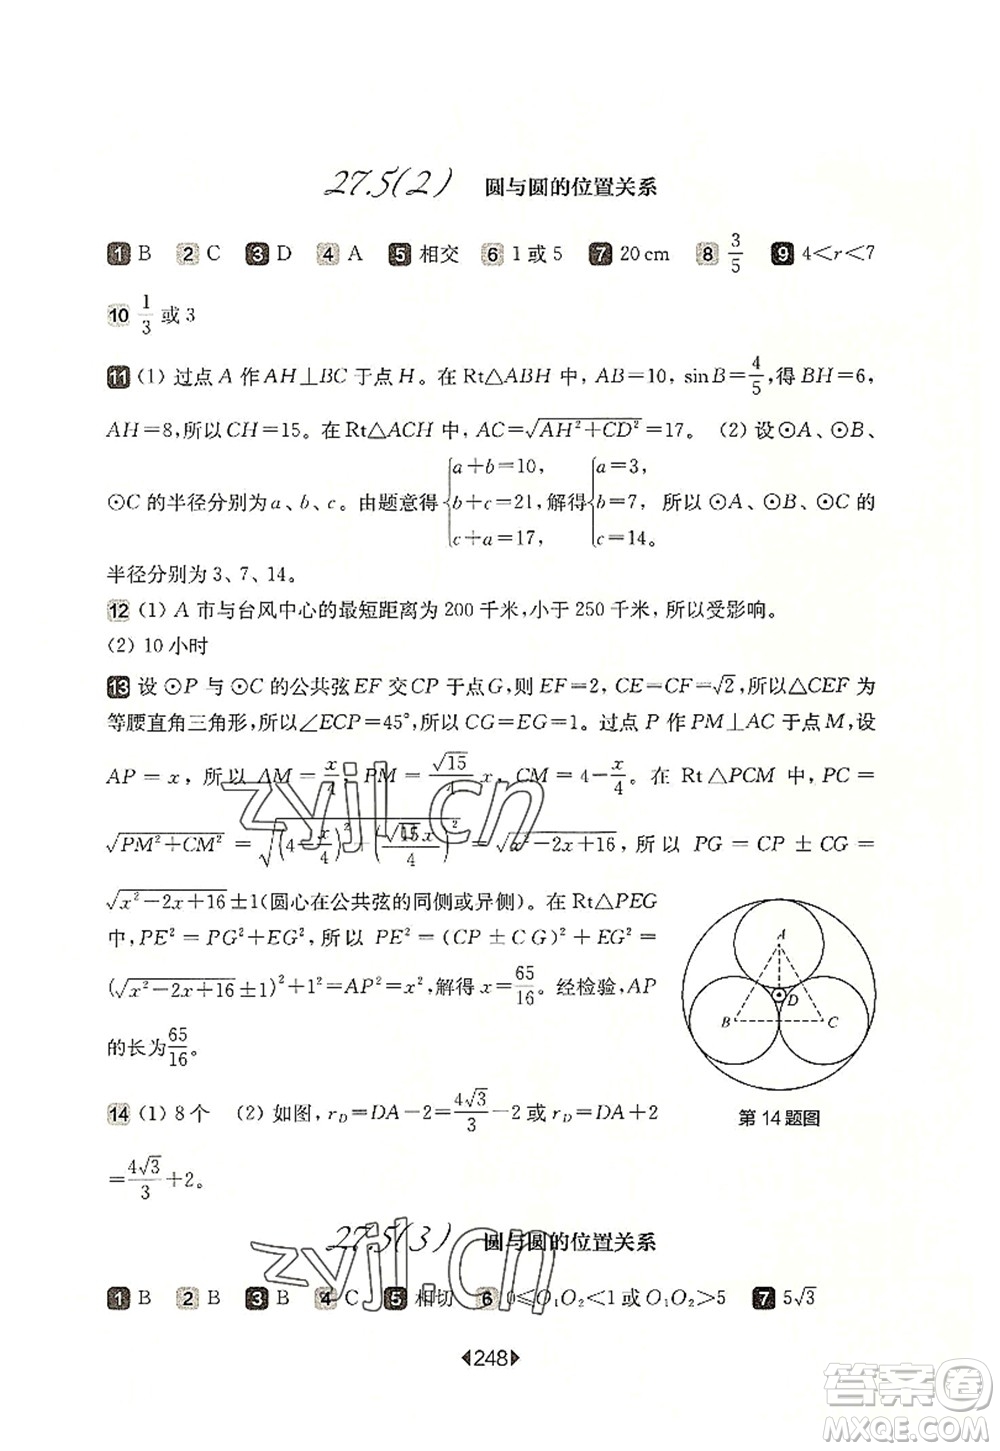 27.5(2) 圆与圆的位置关系
1 B 2 C 3 D 4 A 5 相交 6 1或5 7 20 cm 8 3/5 9 4<r<7
10 1/3 或 3
11 (1) 过点 A 作 AH⊥BC 于点 H。在 Rt△ABH 中，AB=10，sinB=4/5，得 BH=6，
AH=8，所以 CH=15。在 Rt△ACH 中，AC=√(AH²+CD²)=17。 (2) 设⊙A、⊙B、
⊙C 的半径分别为 a、b、c。由题意得{a+b=10，b+c=21，c+a=17，解得{a=3；b=7；c=14。 所以 ⊙A、⊙B、⊙C 的
半径分别为 3、7、14。
12 (1) A 市与台风中心的最短距离为 200 千米，小于 250 千米，所以受影响。
(2) 10 小时
13 设 ⊙P 与 ⊙C 的公共弦 EF 交 CP 于点 G，则 EF=2，CE=CF=√2，所以△CEF 为
等腰直角三角形，所以∠ECP=45°，所以 CG=EG=1。过点 P 作 PM⊥AC 于点 M，设
AP=x，所以 AM=x/4，PM=√15/4 x，CM=4-x/4。在 Rt△PCM 中，PC=
√(PM²+CM²)=√((4-x/4)²+(√15x/4)²)=√(x²-2x+16)，所以 PG=CP±CG=
√(x²-2x+16)±1(圆心在公共弦的同侧或异侧)。在 Rt△PEG
中，PE²=PG²+EG²，所以 PE²=(CP±CG)²+EG²=
(√(x²-2x+16)±1)²+1²=AP²=x²，解得 x=65/16。经检验，AP
的长为65/16。
A
D
B
C
14 (1) 8 个 (2) 如图，r_D=DA-2=4√3/3-2 或 r_D=DA+2
=4√3/3+2。
第 14 题图
27.5(3) 圆与圆的位置关系
1 B 2 B 3 B 4 C 5 相切 6 0≤O₁O₂<1 或 O₁O₂>5 7 5√3
248
zyjl.cn
zyjl.cn
答案圈
MXQE.COM